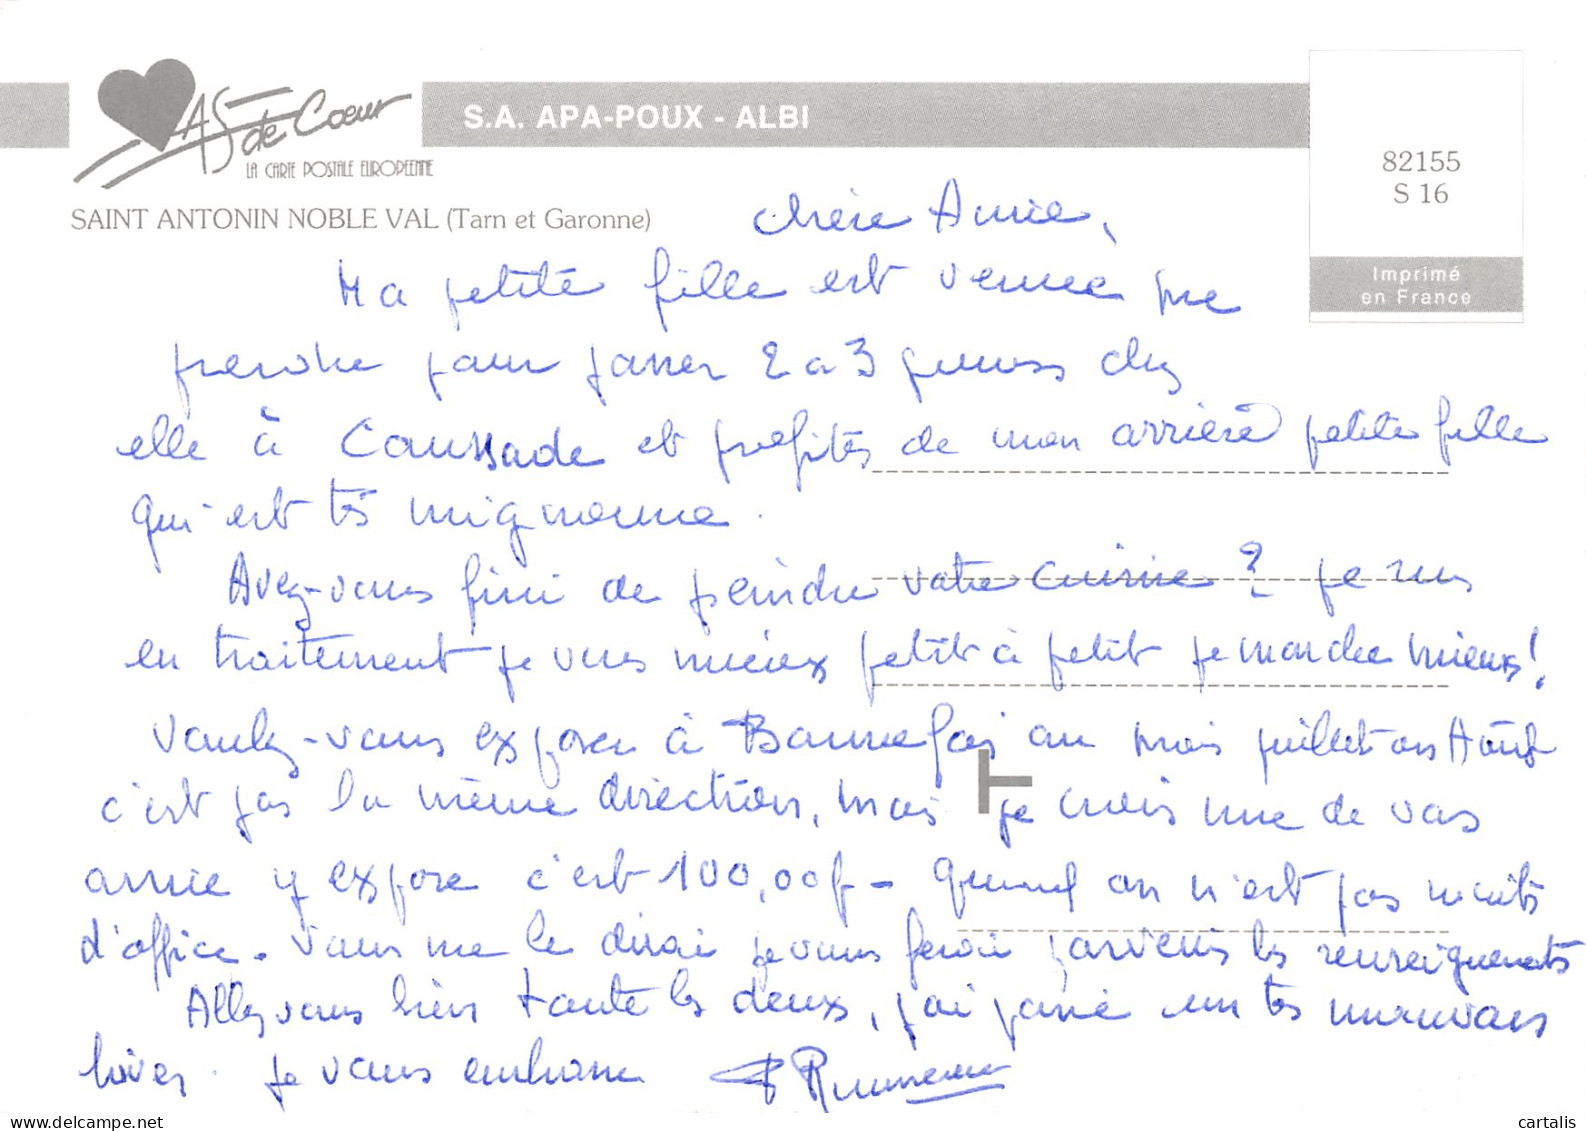 AS de Coeur
LA CARTE POSTALE EUROPEENNE
S.A. APA-POUX - ALBI
82155
S 16
Imprimé
en France
SAINT ANTONIN NOBLE VAL (Tarn et Garonne)
chère Amie,
Ma petite fille est venue me
prendre pour passer 2 a 3 jours chez
elle à Caussade et profités de mon arrière petite fille
qui est tès mignonne.
Avez-vous fini de peindre votre cuisine ? je suis
en traitement je vais mieux petit à petit je marche mieux !
Voulez-vous exposer à Bonnefoi au mois juillet ou Août
c'est pas la même direction, mais je crois une de vos
amie y expose c'est 100,00f - quand on n'est pas
d'office. Vous me le dirai je vous ferai parvenir les renseignements
Allez vous bien toute les deux, j'ai passé un tès mauvais
hiver. je vous embrasse